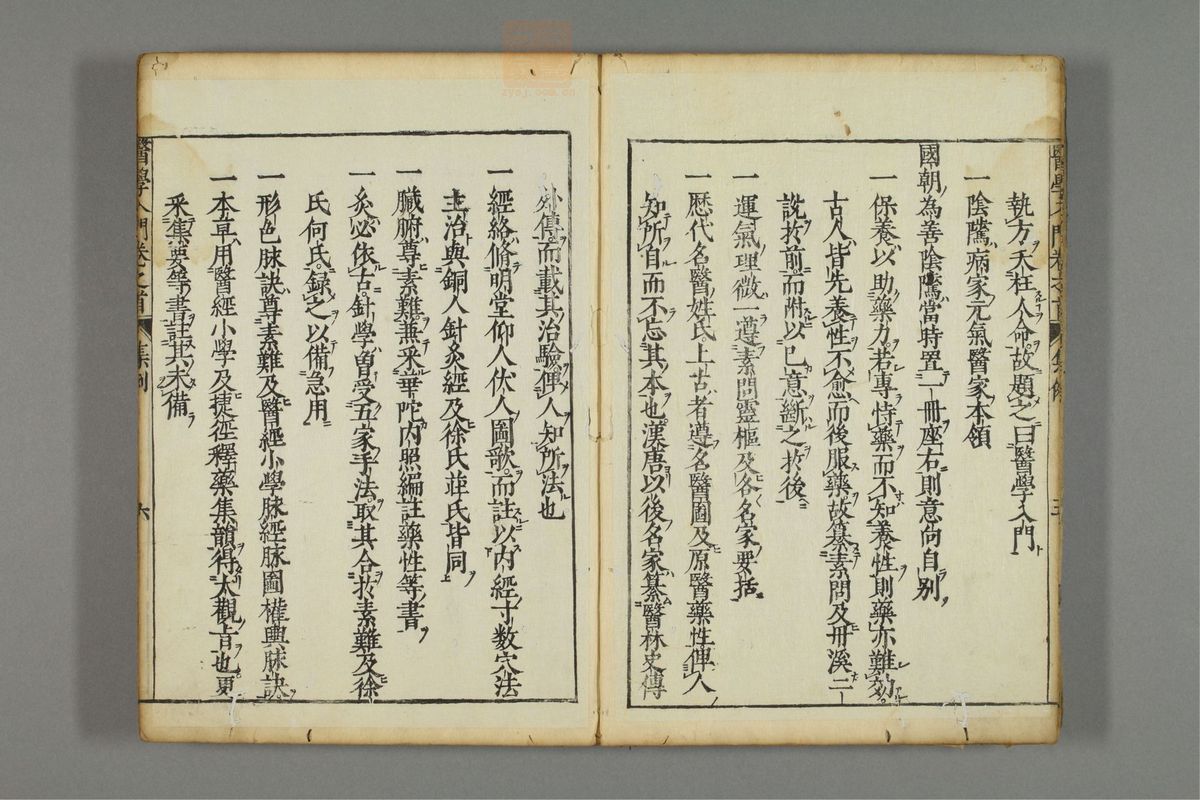 執方夭枉人命故題之曰醫學入門
一陰隲病家元氣醫家本領
國朝為善陰隲當時置一冊座右則意向自别
一保養以助藥力若專恃藥而不知養性則藥亦難効
古人皆先養性不愈而後服藥故纂素問及丹溪二
說於前而附以己意斷之於後
一運氣理微一遵素問靈樞及各名家要括
一歴代名醫姓氏上古者遵名醫圖及原醫藥性俾人
知所自而不忘其本也漢唐以後名家纂醫林史傳
外傳而載其治驗俾人知所法也
一經絡脩明堂仰人伏人圖歌而註以内經寸数穴法
主治與銅人針灸經及徐氏莊氏皆同
一臟腑尊素難兼采華陀内照編註藥性等書
一灸必依古針學曽受五家手法取其合於素難及徐
氏何氏録之以備急用
一形色脉訣尊素難及醫經小學脉經脉圖權輿脉訣
一本草用醫經小學及捷徑釋藥集韻得大觀旨也更
采集要等書註其未備
醫學入門卷之首
集例
六
zyoj.ocm.cn